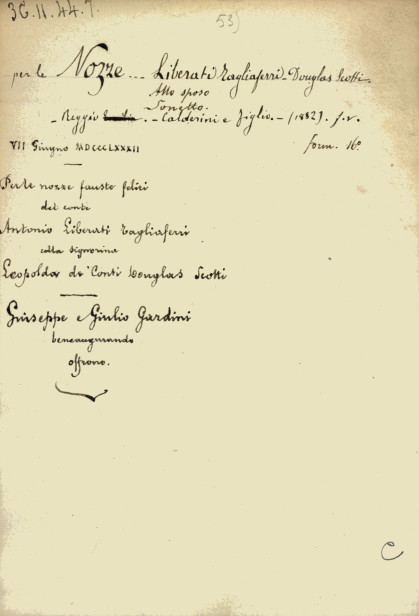 36.11.44.7.
53)
per le Nozze... Liberati Tagliaferri - Douglas Scotti.
Allo sposo
Sonetto.
- Reggio Emilia. - Calderini e Figlio. - (1882). f.v.
VII Giugno MDCCCLXXXII
form. 16º
Per le nozze fauste felici
del conte
Antonio Liberati Tagliaferri
colla signorina
Leopolda de' Conti Douglas Scotti
Giuseppe e Giulio Gardini
beneaugurando
offrono.
C